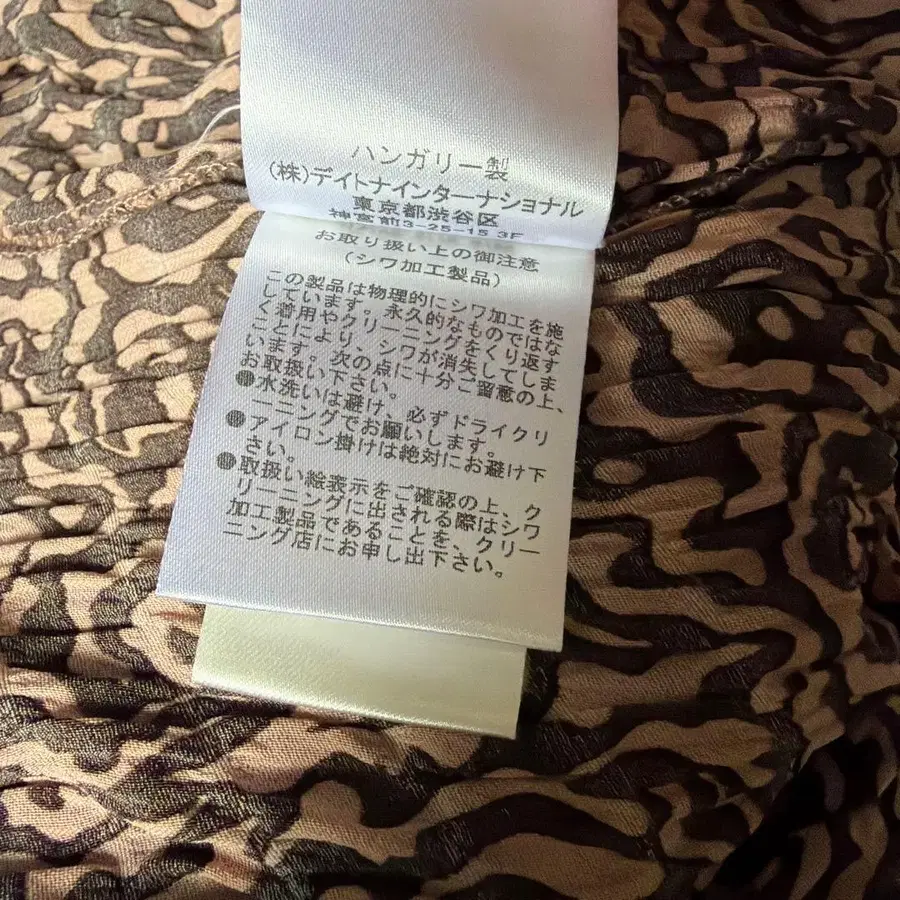 ハンガリー製
(株)デイトナインターナショナル
東京都渋谷区
神宮前3-25-15 3F
お取り扱い上の御注意
(シワ加工製品)
この製品は物理的にシワ加工を施
しています。永久的なものではな
く着用やクリーニングをくり返す
ことにより、シワが消失してしま
います。次の点に十分ご留意の上、
お取扱い下さい。
●水洗いは避け、必ずドライクリ
ーニングでお願いします。
●アイロン掛けは絶対にお避け下
さい。
●取扱い絵表示をご確認の上、ク
リーニングに出される際はシワ
加工製品であることを、クリー
ニング店にお申し出下さい。